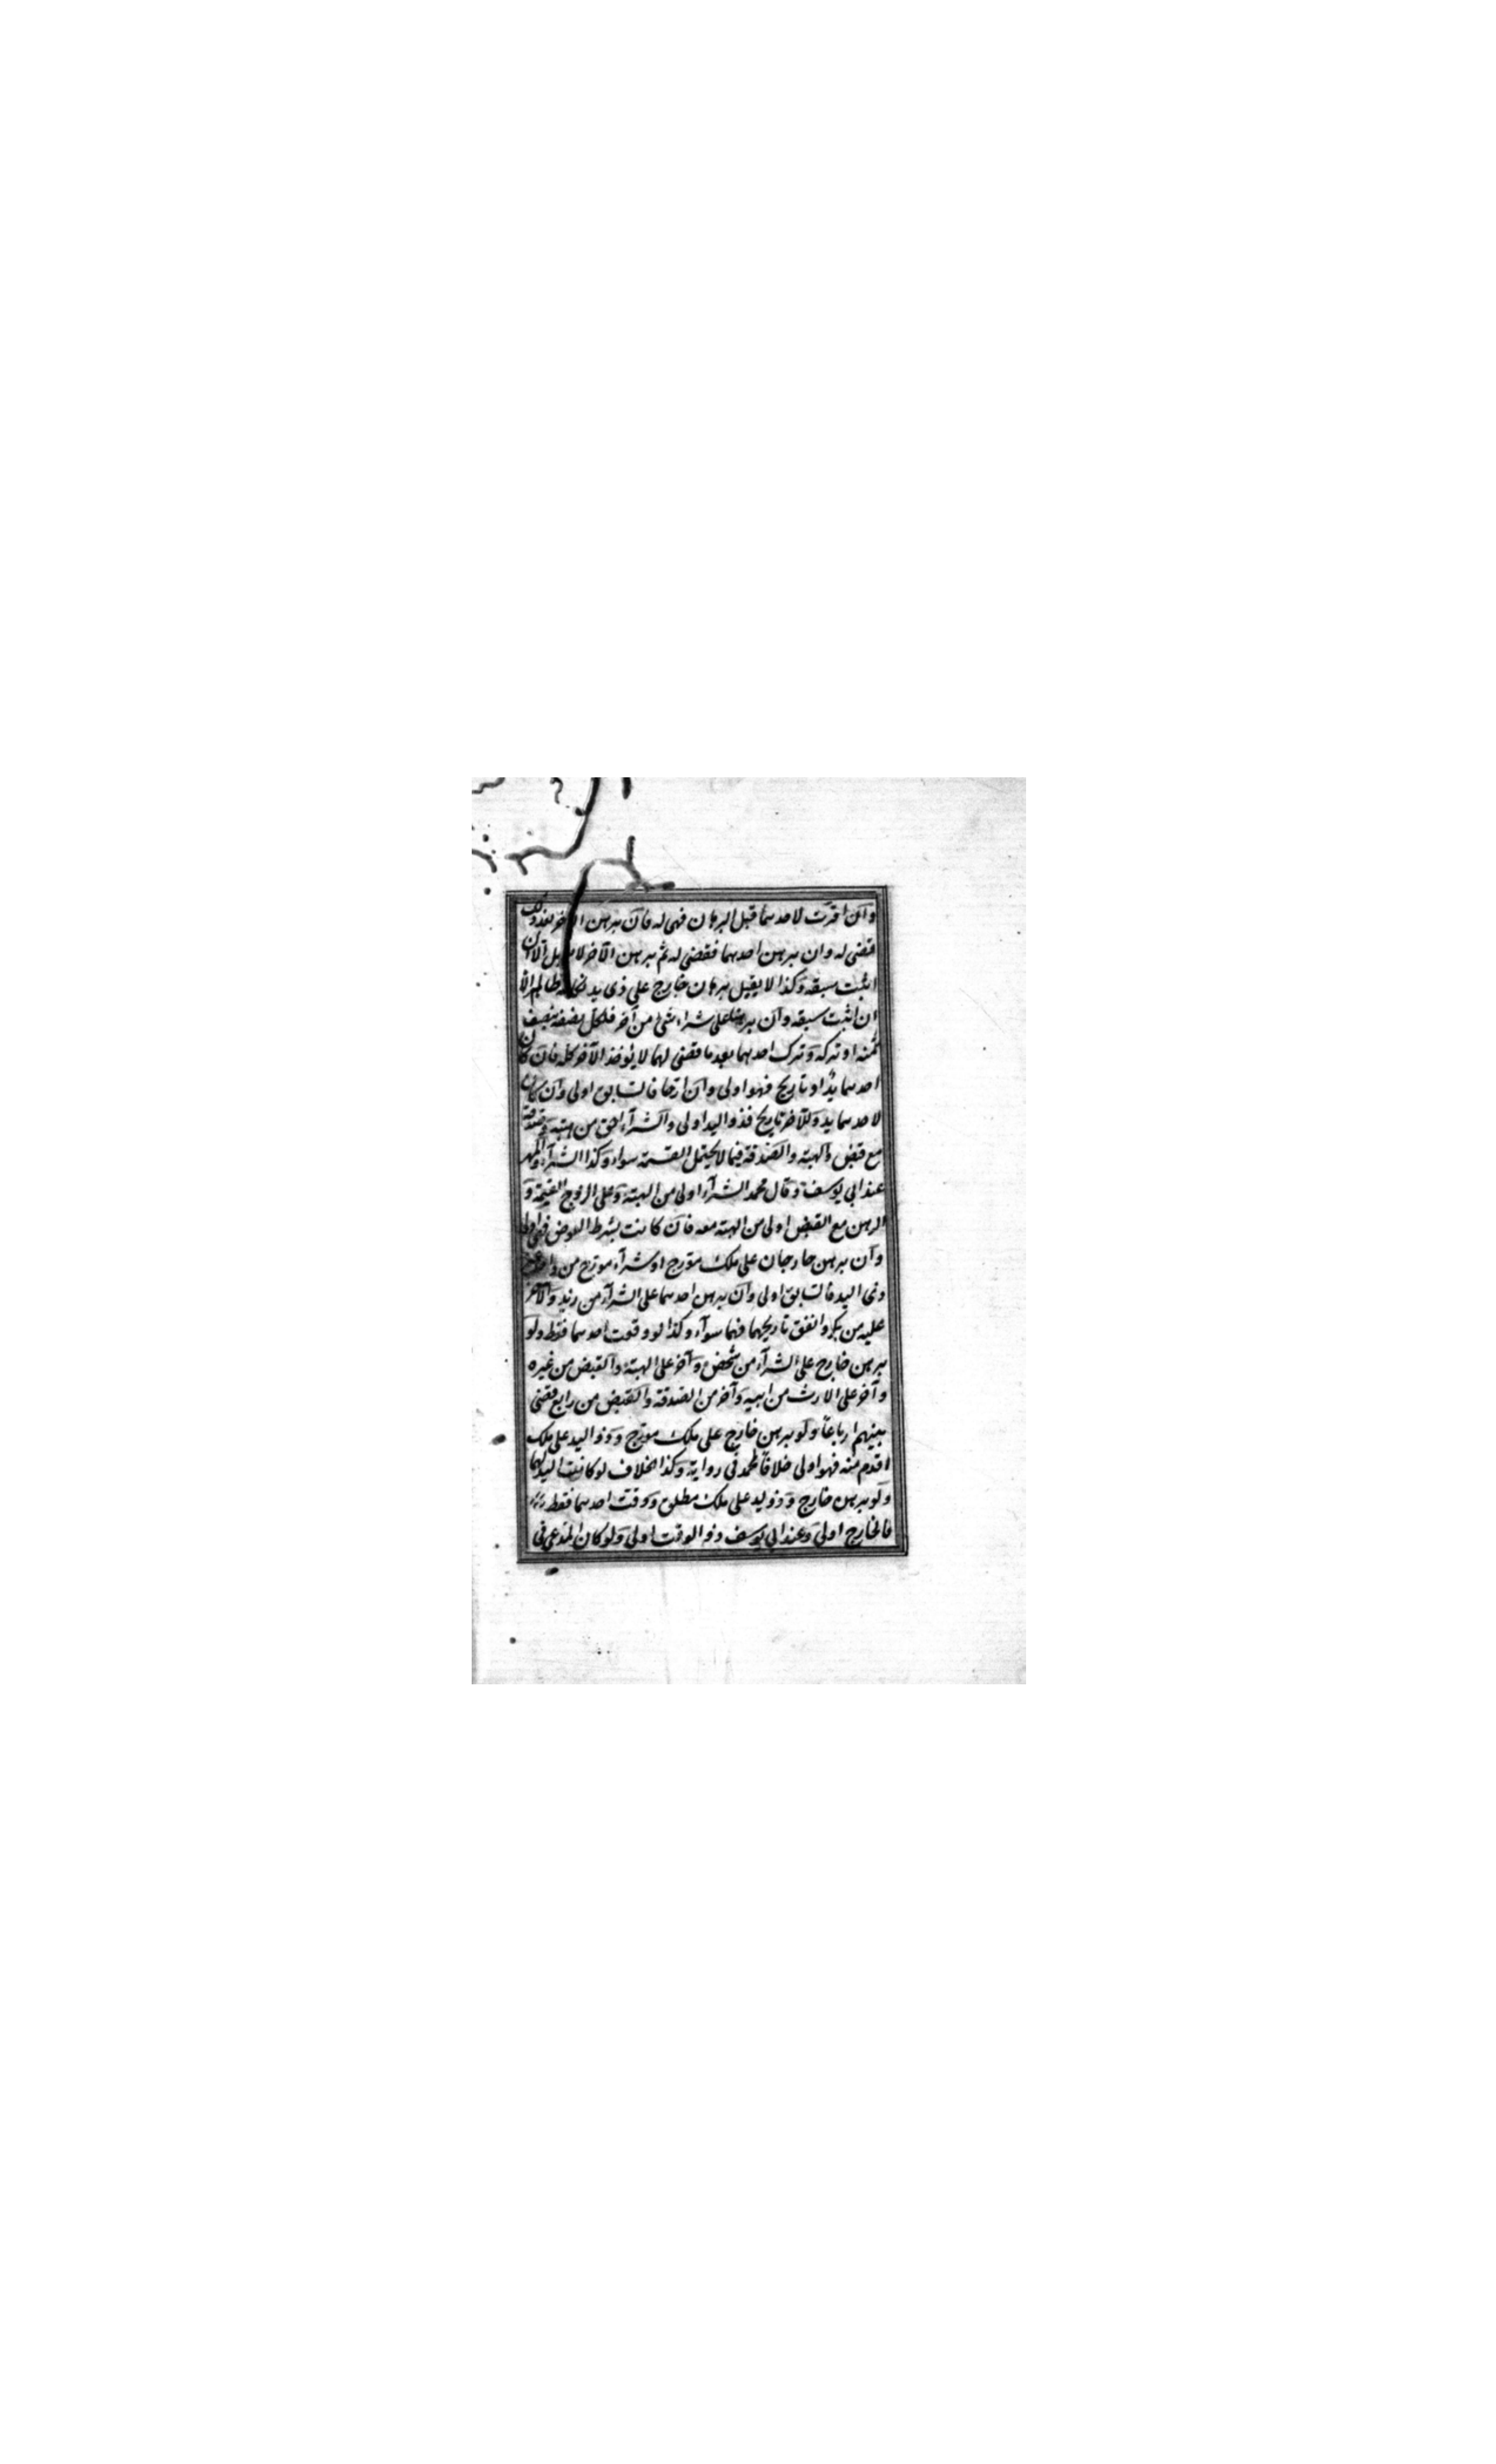 وان اقرت لاحدهما قبل البرهان فهى له فان برهن الآخر بعد ذلك
قضى له وان برهن احدهما فقضى له ثم برهن الآخر لا يقبل الا ان
اثبت سبقه وكذا لا يقبل برهان خارج على ذى يد نكاحه ظاهر الا
ان اثبت سبقه وان برهنا على شراء شئ من آخر فلكل نصفه بنصف
ثمنه او تركه وبترك احدهما بعد ما قضى لهما لا يؤخذ الآخر كله فان كان
احدهما يد او تاريخ فهو اولى وان ارخا فالسابق اولى وان كان
لاحدهما يد وللآخر تاريخ فذو اليد اولى والشراء احق من هبة وصدقة
مع قبض والهبة والصدقة فيما لا يحتمل القسمة سواء وكذا الشراء والمهر
عند ابى يوسف وقال محمد الشراء اولى من الهبة وعلى الزوج القيمة و
الرهن مع القبض اولى من الهبة معه فان كانت بشرط العوض فهى اولى
وان برهن خارجان على ملك مؤرخ او شراء مؤرخ من واحد غير
ذى اليد فالسابق اولى وان برهن احدهما على الشراء من زيد والآخر
عليه من بكر واتفق تاريخهما فهما سواء وكذا لو وقت احدهما فقط ولو
برهن خارج على الشراء من شخص وآخر على الهبة والقبض من غيره
وآخر على الارث من ابيه وآخر من الصدقة والقبض من رابع قضى
بينهم ارباعا ولو برهن خارج على ملك مؤرخ وذو اليد على ملك
اقدم منه فهو اولى خلافا لمحمد فى رواية وكذا الخلاف لو كانت اليد لهما
ولو برهن خارج وذو يد على ملك مطلق ووقت احدهما فقط
فالخارج اولى وعند ابى يوسف ذو الوقت اولى ولو كان المدعى فى